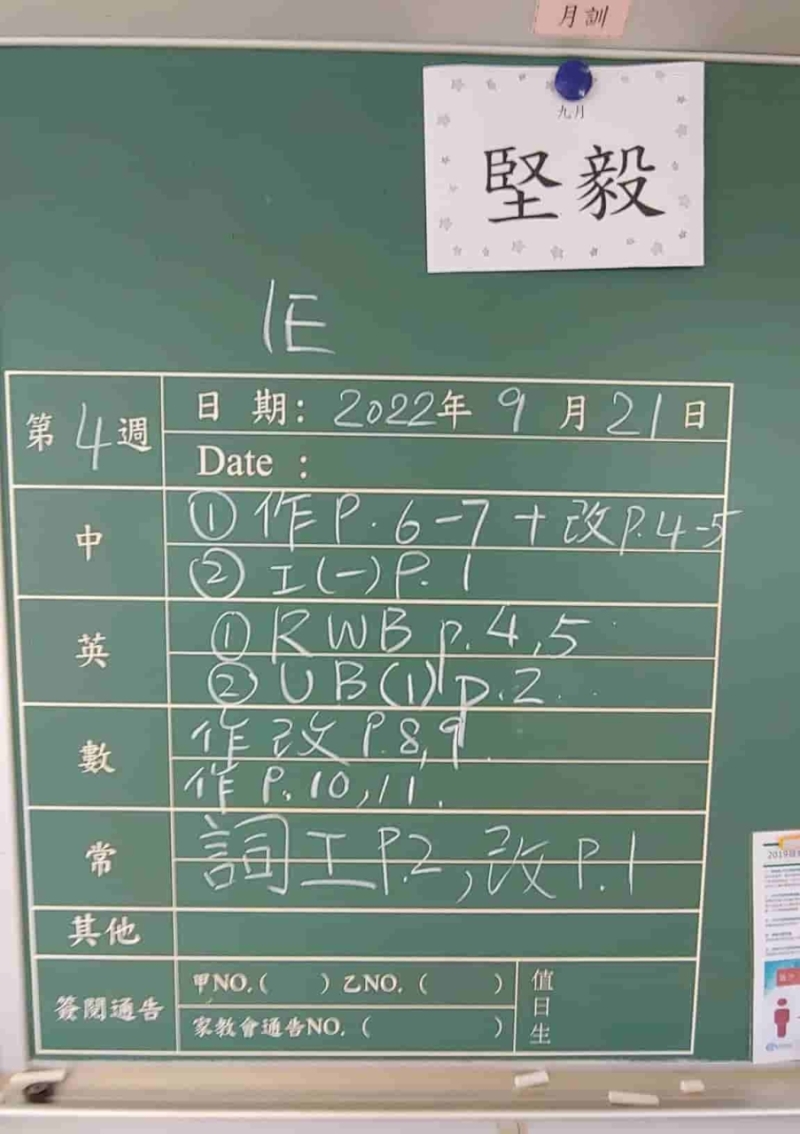 月訓
九月
堅毅
1E
第4週
日期：2022年9月21日
Date :
中
① 作P.6-7+改P.4-5
② 工(一)P.1
英
① RWB p.4,5
② UB(1)p.2
數
作改P.8,9
作P.10,11.
常
詞工P.2,改P.1
其他
簽閱通告
甲NO.(　　)乙NO.(　　)
家教會通告NO.(　　)
值日生
2019